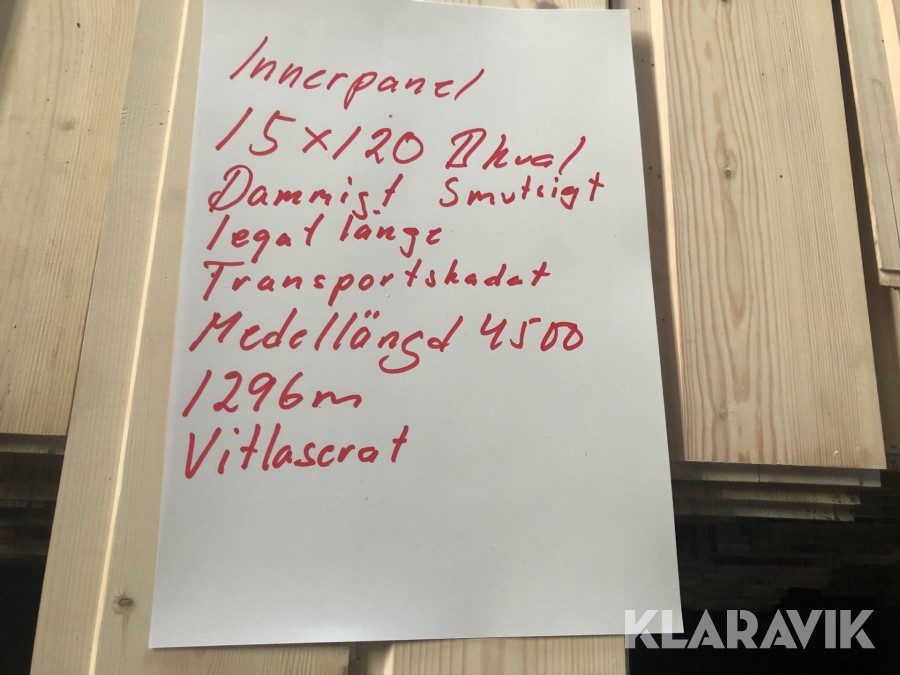 Innerpanel
15x120 II kval
Dammigt Smutsigt
legat länge
Transportskadat
Medellängd 4500
1296m
Vitlaserat
KLARAVIK